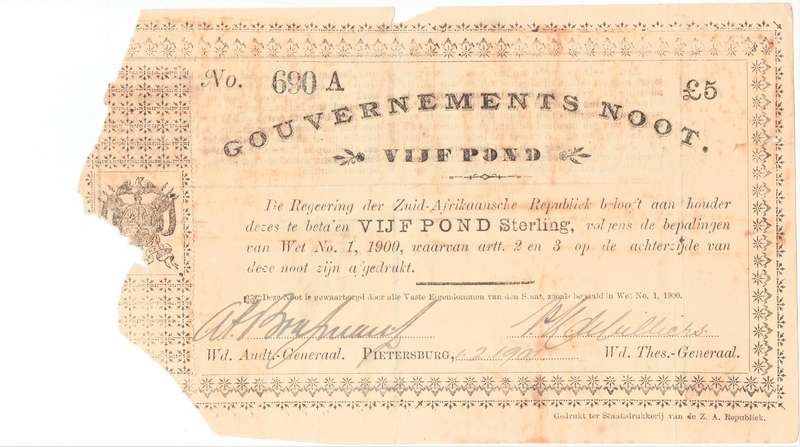 No. 690 A £5
GOUVERNEMENTS NOOT.
VIJF POND
De Regeering der Zuid-Afrikaansche Republiek belooft aan houder
dezes te betalen VIJF POND Sterling, volgens de bepalingen
van Wet No. 1, 1900, waarvan artt. 2 en 3 op de achterzijde van
deze noot zijn afgedrukt.
Deze Noot is gewaarborgd door alle Vaste Eigendommen van den Staat, zooals bepaald in Wet No. 1, 1900.
Wd. Audt.-Generaal. PIETERSBURG, Wd. Thes.-Generaal.
Gedrukt ter Staatsdrukkerij van de Z. A. Republiek.